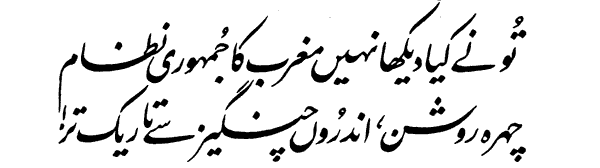 تُو نے کیا دیکھا نہیں مغرب کا جُمہوری نظام
چہرہ روشن، اندرُوں چنگیز سے تاریک تر!